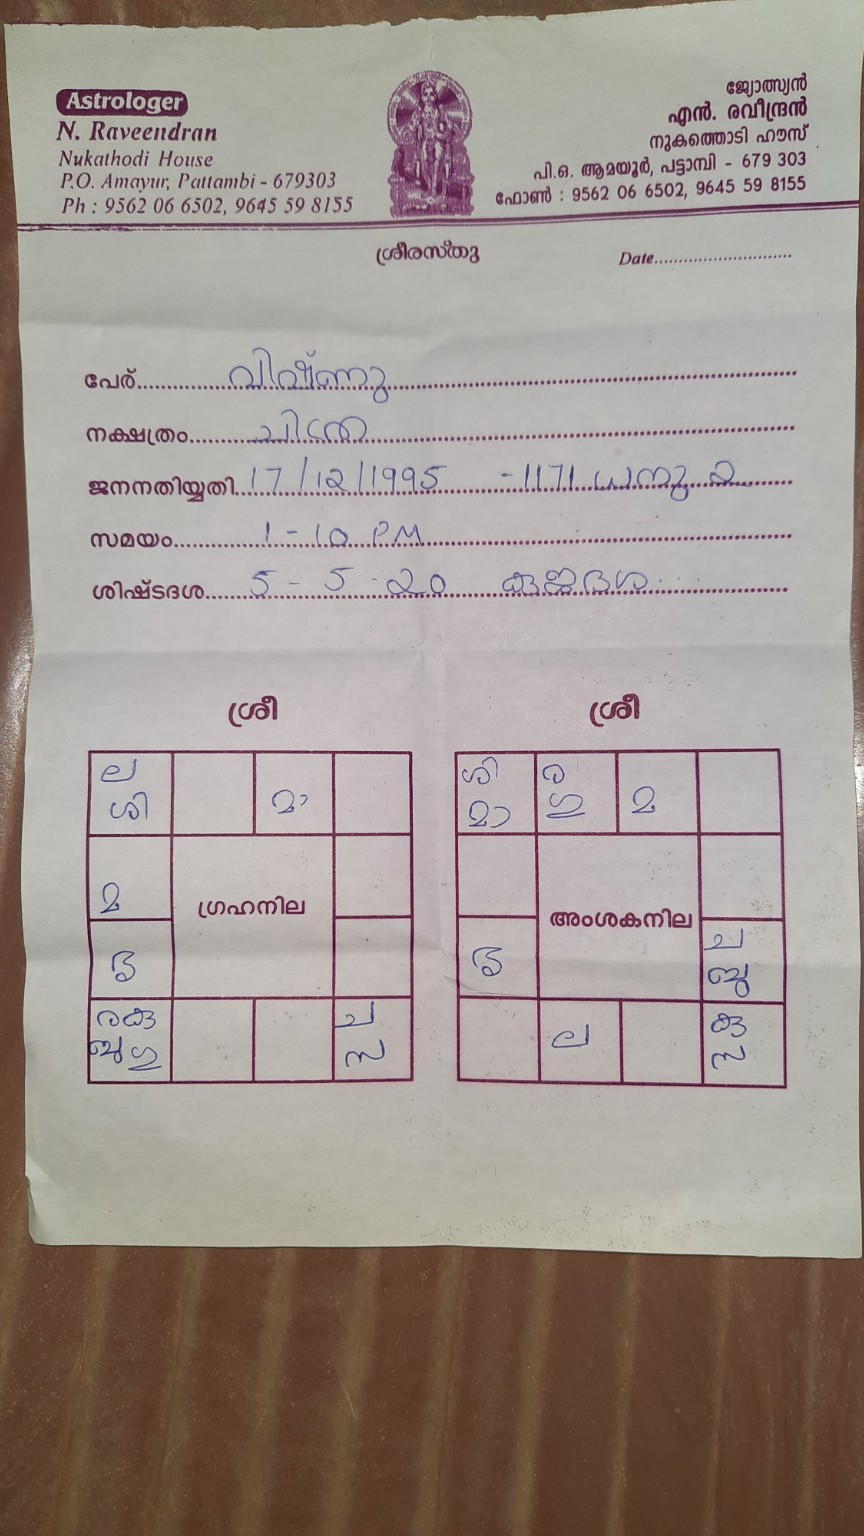 Astrologer
N. Raveendran
Nukathodi House
P.O. Amayur, Pattambi - 679303
Ph : 9562 06 6502, 9645 59 8155
ജ്യോത്സ്യൻ
എൻ. രവീന്ദ്രൻ
നുകത്തൊടി ഹൗസ്
പി.ഒ. ആമയൂർ, പട്ടാമ്പി - 679 303
ഫോൺ : 9562 06 6502, 9645 59 8155
ശ്രീരസ്തു
Date............................
പേര്.............വിഷ്ണു.............
നക്ഷത്രം.............ചിത്ര.............
ജനനതിയ്യതി..17/12/1995 - 1171 ധനു 2
സമയം.............1-10 PM.............
ശിഷ്ടദശ.......5 - 5 - 20 കുജദശ.......
ശ്രീ
ല
ശി
മാ
മ
ഗ്രഹനില
ര കു
ബു ഗു
ച
സ
ശ്രീ
ശി
മാ
ര
ഗു
മ
അംശകനില
ച
ബു
ല
കു
സ